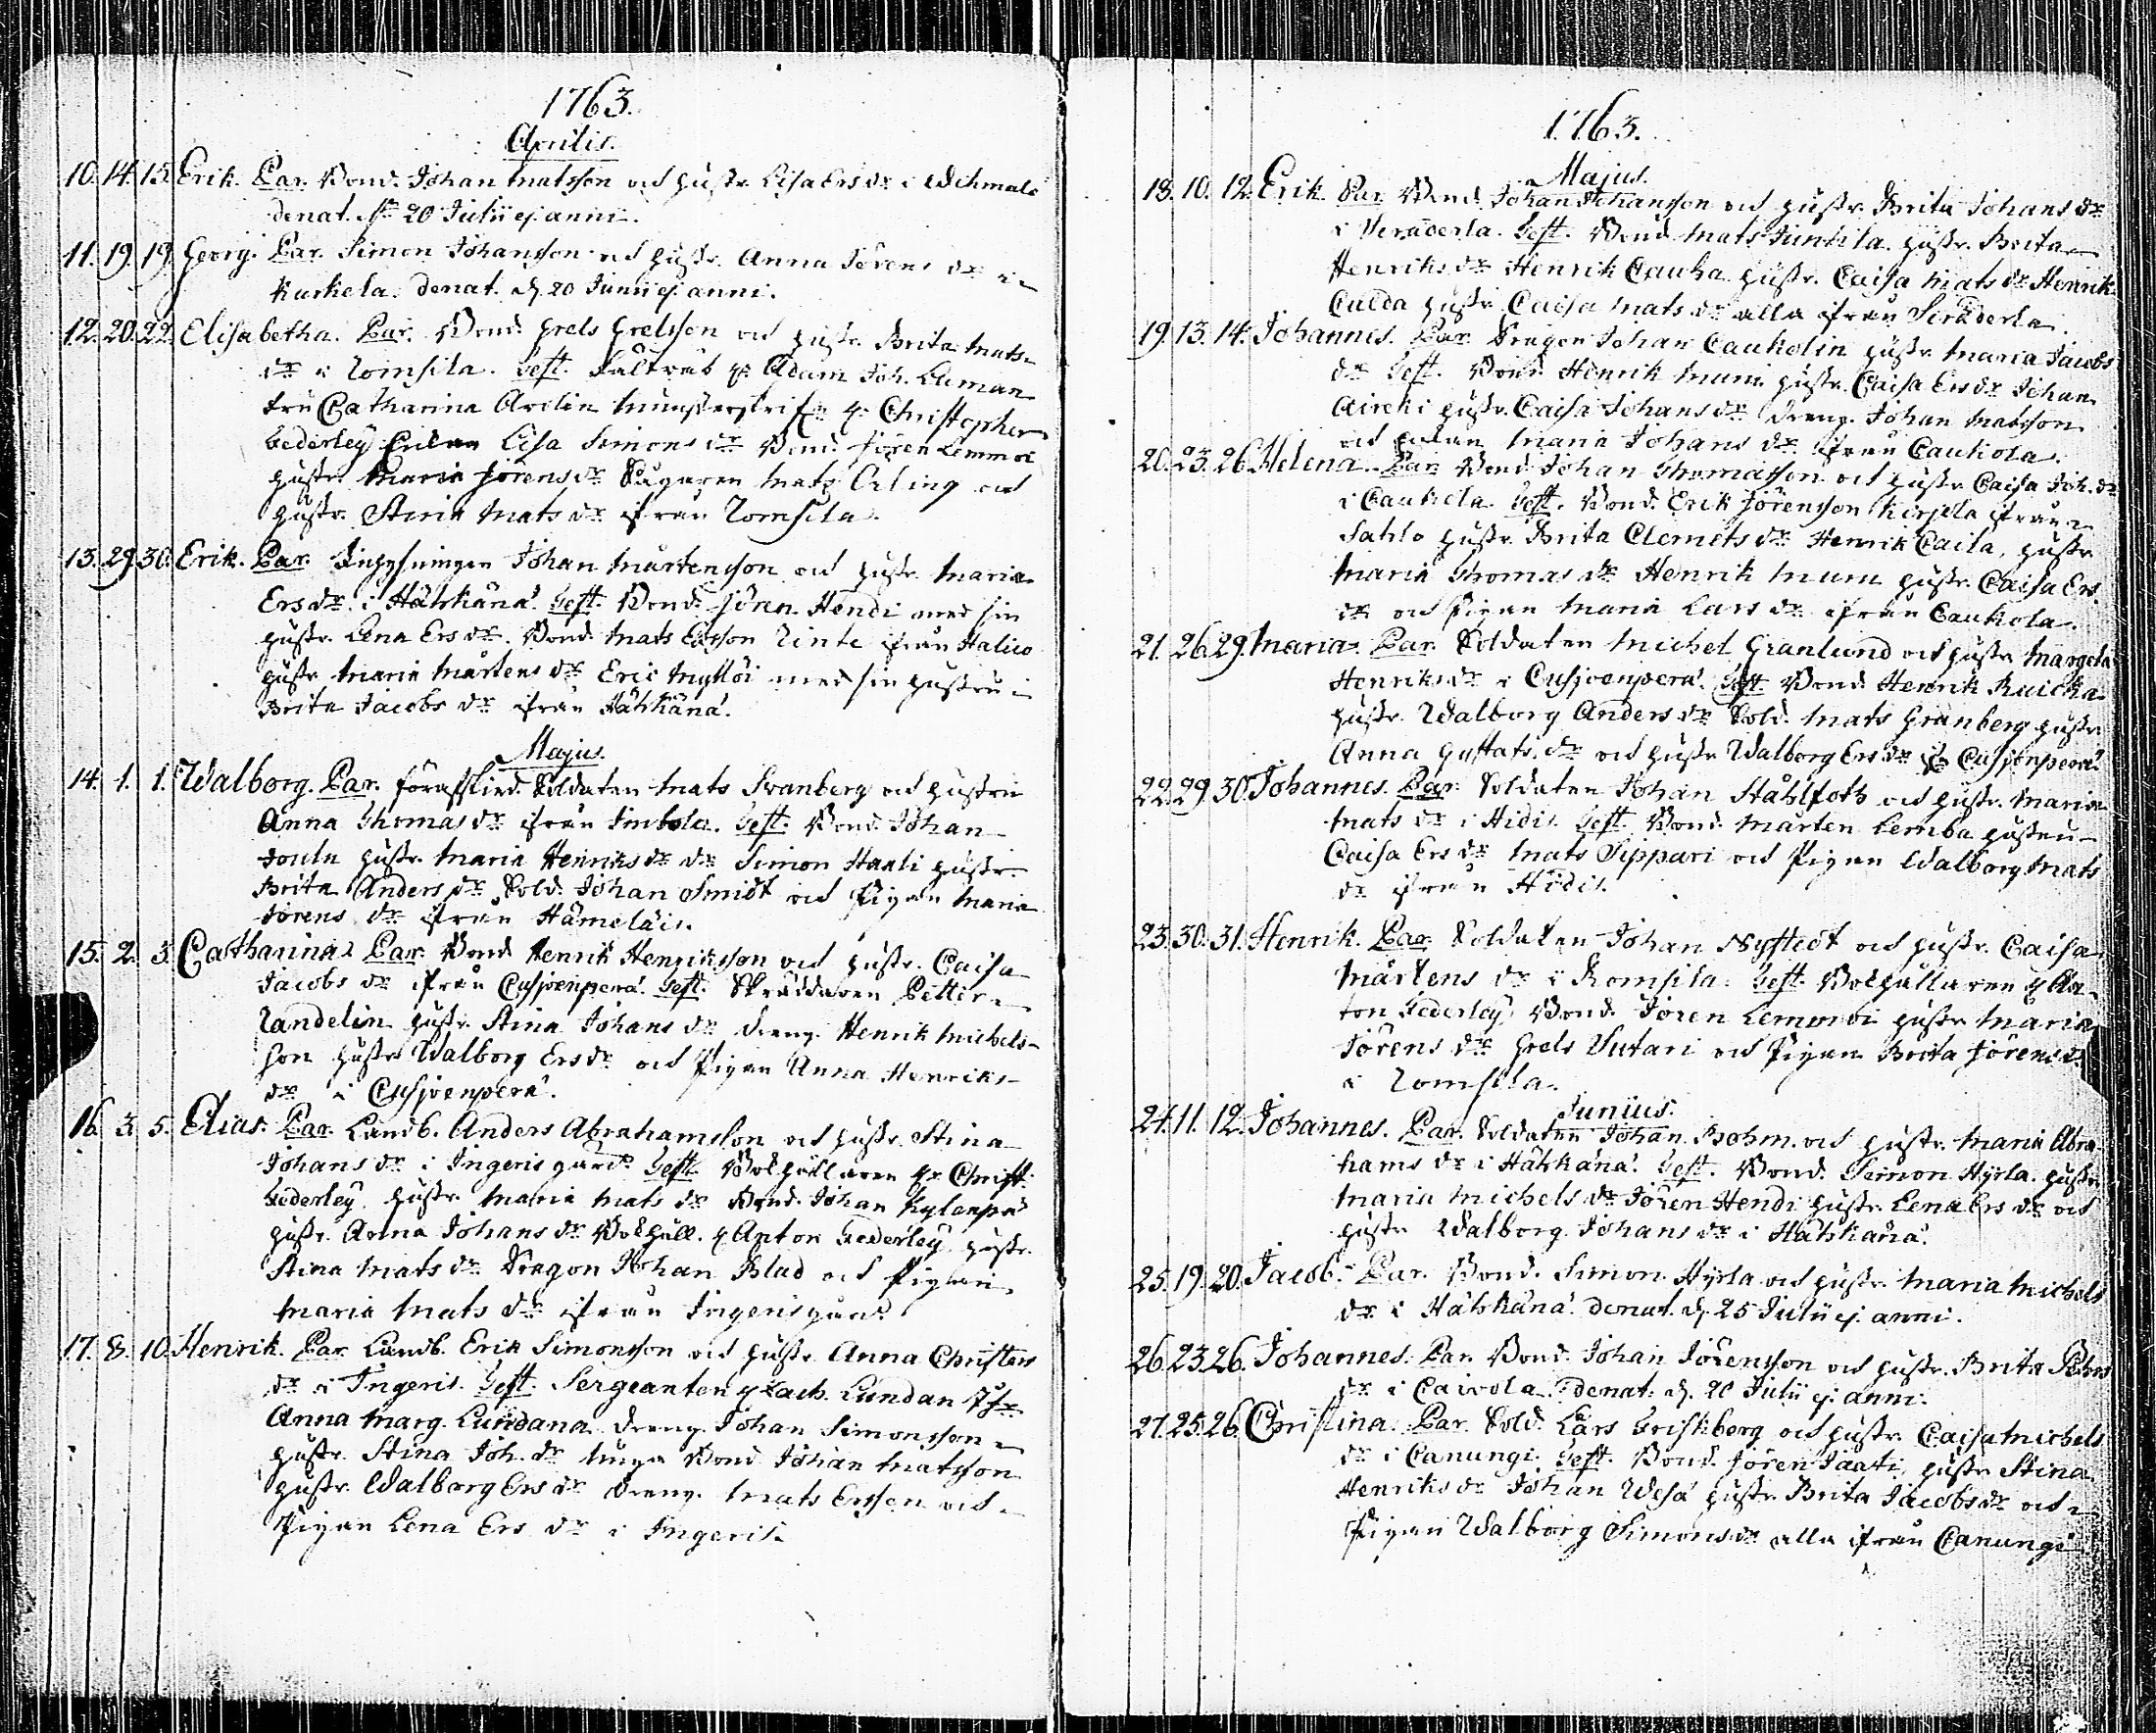 1763.
Aprilis.
10. 14. 15. Erik. Par. Bond. Johan Matsson och hustr. Lisa Ers dr i Wihmalo
denat. d. 20 Julii ej. anni.
11. 19. 19. Georg. Par. Simon Johansson och hustr. Anna Jörens dr i
Kurkela. denat. d. 20 Junii ej. anni.
12. 20. 22. Elisabetha. Par. Bond. Grels Grelsson och hustr. Brita Mats
dr i Romsila. Test. H. Adam Joh. Laman
fru Catharina Arelin H. Christopher
Gederley Lisa Simons dr Bond. Jören Lemmoi
hustr. Maria Jörens dr Mats Erling och
hustr. Stina Mats dr ifrån Romsila.
13. 29. 30. Erik. Par. Inhysningen Johan Mårtensson och hustr. Maria
Ers dr. i Hähkänä. Test. Bond. Jören Hendi med sin
hustr. Lena Ers dr. Bond. Mats Ersson Rinte ifrån Halico
hustr. Maria Mårtens dr Eric Myllöi med sin hustru
Brita Jacobs dr ifrån Hähkänä.
Majus.
14. 1. 1. Walborg. Par. förafskied. Soldaten Mats Svanberg och hustru
Anna Thomas dr ifrån Imbola. Test. Bond. Johan
Joula hustr. Maria Henriks dr Simon Haali hustr.
Brita Anders dr Sold. Johan Smidt och Pigan Maria
Jörens dr ifrån Hämeläis.
15. 2. 3. Catharina. Par. Bond Henrik Henriksson och hustr. Caisa
Jacobs dr ifrån Cusjoenperä. Test. Skräddaren Petter
Randelin hustr. Stina Johans dr dreng. Henrik Michels-
son hustr. Walborg Ers dr och Pigan Anna Henriks
dr i Cusjoenperä.
16. 3. 5. Elias. Par. Landb. Anders Abrahamsson och hustr. Stina
Johans dr i Ingerisgård. Test. Bokhållaren Hr Christ.
Gederley hustr. Maria Mats dr Bond. Johan Kylenpä
hustr. Anna Johans dr Bokhåll. H Anton Gederley hustr.
Stina Mats dr Dragon Johan Blad och Pigan
Maria Mats dr ifrån Ingerisgård.
17. 8. 10. Henrik. Par. Landb. Erik Simonsson och hustr. Anna Christers
dr i Ingeris. Test. Sergeanten H Zach. Lundan
Anna Marg. Lundana dreng. Johan Simonsson
hustr. Stina Joh. dr unga Bond Johan Matsson
hustr. Walborg Ers dr dreng. Mats Ersson och
Pigan Lena Ers dr i Ingeris.
1763.
Majus.
18. 10. 12. Erik. Par. Bond. Johan Johansson och hustr. Brita Johans dr
i Teräderla. Test. Bond. Mats Juntila hustr. Brita
Henriks dr Henrik Cauha hustr. Caisa Mats dr Henrik
Culda hustr. Caisa Mats dr alla ifrån Teräderla.
19. 13. 14. Johannes. Par. Dragon Johan Caukolin hustr. Maria Jacobs
dr Test. Bond. Henrik Muni hustr. Caisa Ers dr Johan
Aireki hustr. Caisa Johans dr dreng. Johan Matsson
och Maria Johans dr ifrån Caukola.
20. 23. 26. Helena. Par. Bond. Johan Thomasson och hustr. Caisa Joh. dr
i Caukola. Test. Bond. Erik Jörensson Kirjola ifrån
Sahlo hustr. Brita Clemets dr Henrik Caila, hustr.
Maria Thomas dr Henrik Muni hustr. Caisa Ers
dr och Pigan Maria Lars dr ifrån Caukola.
21. 26. 29. Maria. Par. Soldaten Michel Granlund och hustr. Margeta
Henriks dr i Cusjoenperä. Test. Bond Henrik Ruicka
hustr. Walborg Anders dr Sold. Mats Granberg hustr.
Anna Gustafs dr och hustr. Walborg Ers dr if. Cusjoenperä.
22. 29. 30. Johannes. Par. Soldaten Johan Ståhlfoth och hustr. Maria
Mats dr i Hidis. Test. Bond. Mårten Lemba hustru
Caisa Ers dr Mats Sippari och Pigan Walborg Mats
dr ifrån Hidis.
23. 30. 31. Henrik. Par. Soldaten Johan Nystedt och hustr. Caisa
Mårtens dr i Romsila. Test. Bokhållaren H An-
ton Gederley Bond. Jören Lemmoi hustr. Maria
Jörens dr Grels Sutari och Pigan Brita Jörens dr
i Romsila.
Junius.
24. 11. 12. Johannes. Par. Soldaten Johan Bohm och hustr. Maria Abra-
hams dr i Hähkänä. Test. Bond. Simon Hyrla hustr.
Maria Michels dr Jören Hendi hustr. Lena Ers dr och
hustr. Walborg Johans dr i Hähkänä.
25. 19. 20. Jacob. Par. Bond. Simon Hyrla och hustr. Maria Michels
dr i Hähkänä. denat. d. 25 Julii ej. anni.
26. 23. 26. Johannes. Par. Bond. Johan Jörensson och hustr. Brita Johans
dr i Caivola. denat. d. 20 Julii ej. anni.
27. 25. 26. Christina. Par. Sold. Lars Friskberg och hustr. Caisa Michels
dr i Canungi. Test. Bond. Jören Jaati, hustr. Stina
Henriks dr Johan Wesa hustr. Brita Jacobs dr och
Pigan Walborg Simons dr alla ifrån Canungi.